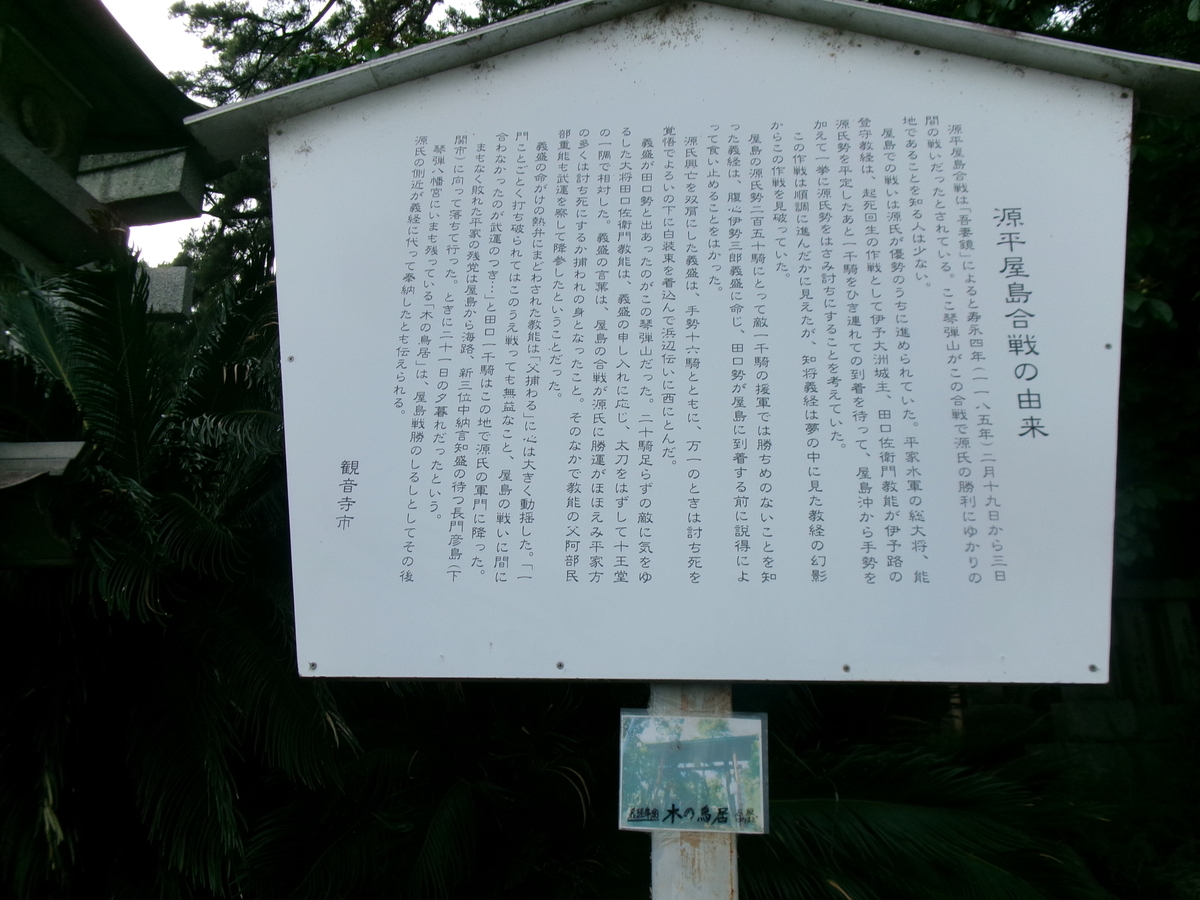 源平屋島合戦の由来
源平屋島合戦は「吾妻鏡」によると寿永四年（一一八五年）二月十九日から三日
間の戦いだったとされている。ここ琴弾山がこの合戦で源氏の勝利にゆかりの
地であることを知る人は少ない。
屋島での戦いは源氏が優勢のうちに進められていた。平家水軍の総大将、能
登守教経は、起死回生の作戦として伊予大洲城主、田口佐衛門教能が伊予路の
源氏勢を平定したあと一千騎をひき連れての到着を待って、屋島沖から手勢を
加えて一挙に源氏勢をはさみ討ちにすることを考えていた。
この作戦は順調に進んだかに見えたが、知将義経は夢の中に見た教経の幻影
からこの作戦を見破っていた。
屋島の源氏勢二百五十騎にとって敵一千騎の援軍では勝ちめのないことを知
った義経は、腹心伊勢三郎義盛に命じ、田口勢が屋島に到着する前に説得によ
って食い止めることをはかった。
源氏興亡を双肩にした義盛は、手勢十六騎とともに、万一のときは討ち死を
覚悟でよろいの下に白装束を着込んで浜辺伝いに西にとんだ。
義盛が田口勢と出あったのがこの琴弾山だった。二十騎足らずの敵に気をゆ
るした大将田口佐衛門教能は、義盛の申し入れに応じ、太刀をはずして十王堂
の一隅で相対した。義盛の言葉は、屋島の合戦が源氏に勝運がほほえみ平家方
の多くは討ち死にするか捕われの身となったこと。そのなかで教能の父阿部民
部重能も武運を察して降参したということだった。
義盛の命がけの熱弁にまどわされた教能は「父捕わる」に心は大きく動揺した。「一
門ことごとく打ち破られてはこのうえ戦っても無益なこと、屋島の戦いに間に
合わなかったのが武運のつき…」と田口一千騎はこの地で源氏の軍門に降った。
まもなく敗れた平家の残党は屋島から海路、新三位中納言知盛の待つ長門彦島（下
関市）に向って落ちて行った。ときに二十一日の夕暮れだったという。
琴弾八幡宮にいまも残っている「木の鳥居」は、屋島戦勝のしるしとしてその後
源氏の側近が義経に代って奉納したとも伝えられる。
観音寺市
木の鳥居